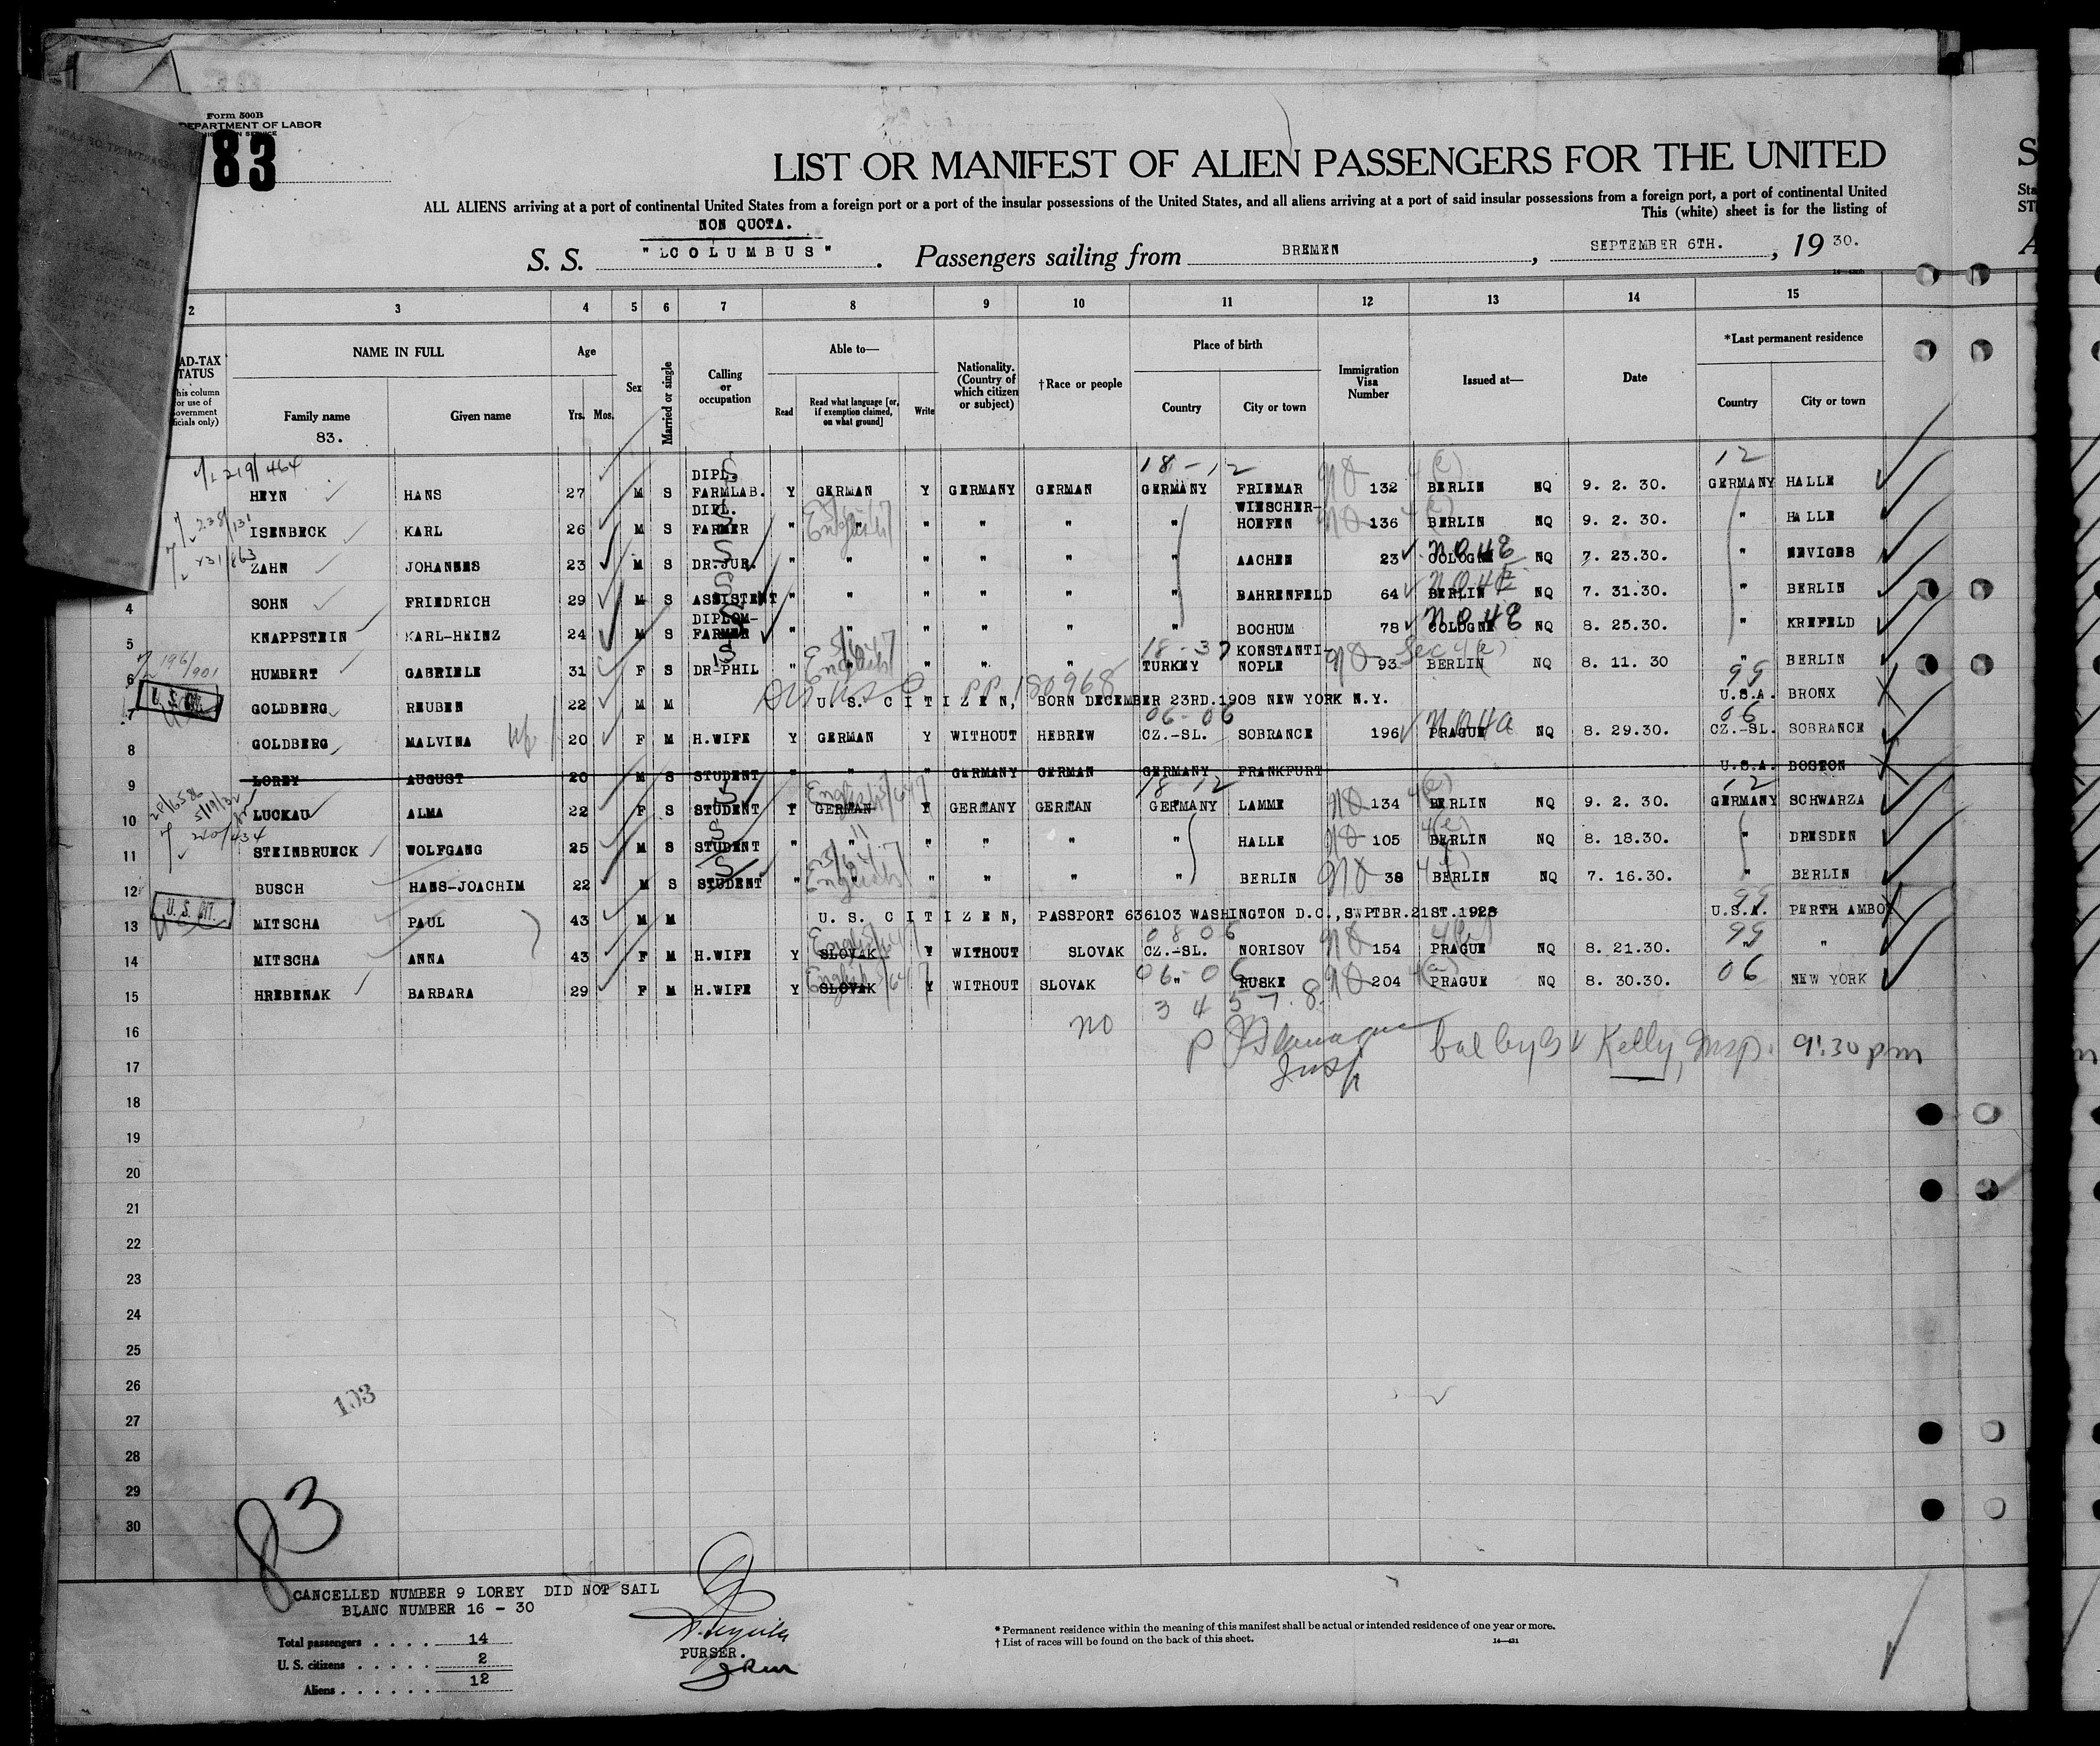 Form 500B
DEPARTMENT OF LABOR
83
LIST OR MANIFEST OF ALIEN PASSENGERS FOR THE UNITED
ALL ALIENS arriving at a port of continental United States from a foreign port or a port of the insular possessions of the United States, and all aliens arriving at a port of said insular possessions from a foreign port, a port of continental United
This (white) sheet is for the listing of
NON QUOTA.
S. S. "COLUMBUS". Passengers sailing from BREMEN, SEPTEMBER 6TH., 1930.
2 3 4 5 6 7 8 9 10 11 12 13 14 15
NAME IN FULL Age Sex Married or single Calling or occupation Able to— Nationality. (Country of which citizen or subject) †Race or people Place of birth Immigration Visa Number Issued at— Date *Last permanent residence
Family name Given name Yrs. Mos. Read Read what language [or, if exemption claimed, on what ground] Write Country City or town Country City or town
83.
219/464 18-12 12
HEYN HANS 27 M S DIPL. FARMLAB. Y GERMAN Y GERMANY GERMAN GERMANY FRIEMAR 132 BERLIN NQ 9. 2. 30. GERMANY HALLE
ISENBECK KARL 26 M S DIPL. FARMER " " " " " " WIESCHER-HOEFEN 136 BERLIN NQ 9. 2. 30. " HALLE
ZAHN JOHANNES 23 M S DR.JUR. " " " " " " AACHEN 23 COLOGNE NQ 7. 23.30. " NEVIGES
4 SOHN FRIEDRICH 29 M S ASSISTENT " " " " " " BAHRENFELD 64 BERLIN NQ 7. 31.30. " BERLIN
5 KNAPPSTEIN KARL-HEINZ 24 M S DIPLOM-FARMER " " " " " " BOCHUM 78 COLOGNE NQ 8. 25.30. " KREFELD
6 HUMBERT GABRIELE 31 F S DR-PHIL " English " " " TURKEY KONSTANTI-NOPLE 93 Sec 4(e) BERLIN NQ 8. 11. 30 " BERLIN
7 GOLDBERG REUBEN 22 M M U. S. CITIZEN, BORN DECEMBER 23RD.1908 NEW YORK N.Y. PP. 180968 99 U.S.A. BRONX
8 GOLDBERG MALVINA 20 F M H.WIFE Y GERMAN Y WITHOUT HEBREW 06-06 CZ.-SL. SOBRANCE 196 PRAGUE NQ 8. 29.30. 06 CZ.-SL. SOBRANCE
9 LOREY AUGUST 20 M S STUDENT " " " GERMANY GERMAN GERMANY FRANKFURT U.S.A. BOSTON
10 LUCKAU ALMA 22 F S STUDENT Y GERMAN English Y GERMANY GERMAN 18 12 GERMANY LAMME 134 4(e) BERLIN NQ 9. 2. 30. 12 GERMANY SCHWARZA
11 STEINBRUECK WOLFGANG 25 M S STUDENT " " " " " " HALLE 105 4(e) BERLIN NQ 8. 18.30. " DRESDEN
12 BUSCH HANS-JOACHIM 22 M S STUDENT " English " " " " BERLIN 38 BERLIN NQ 7. 16.30. " BERLIN
U. S. CIT.
13 MITSCHA PAUL 43 M M U. S. CITIZEN, PASSPORT 636103 WASHINGTON D.C.,SWPTBR.21ST.1928 99 U.S.A. PERTH AMBOY
14 MITSCHA ANNA 43 F M H.WIFE Y SLOVAK English Y WITHOUT SLOVAK CZ.-SL. NORISOV 154 PRAGUE NQ 8. 21.30. 99 " "
15 HREBENAK BARBARA 29 F M H.WIFE Y SLOVAK English Y WITHOUT SLOVAK 06-06 " RUSKE 204 4(a) PRAGUE NQ 8. 30.30. 06 NEW YORK
no 3 4 5 7. 8.
16
Insp Kelly, Insp. 9:30 pm
17
18
19
20
21
22
23
24
25
26
27
28
29
30
103
83
CANCELLED NUMBER 9 LOREY DID NOT SAIL
BLANC NUMBER 16 - 30
Total passengers .... 14
U. S. citizens ..... 2
Aliens ...... 12
PURSER.
* Permanent residence within the meaning of this manifest shall be actual or intended residence of one year or more.
† List of races will be found on the back of this sheet.